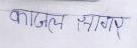 काजल सागर